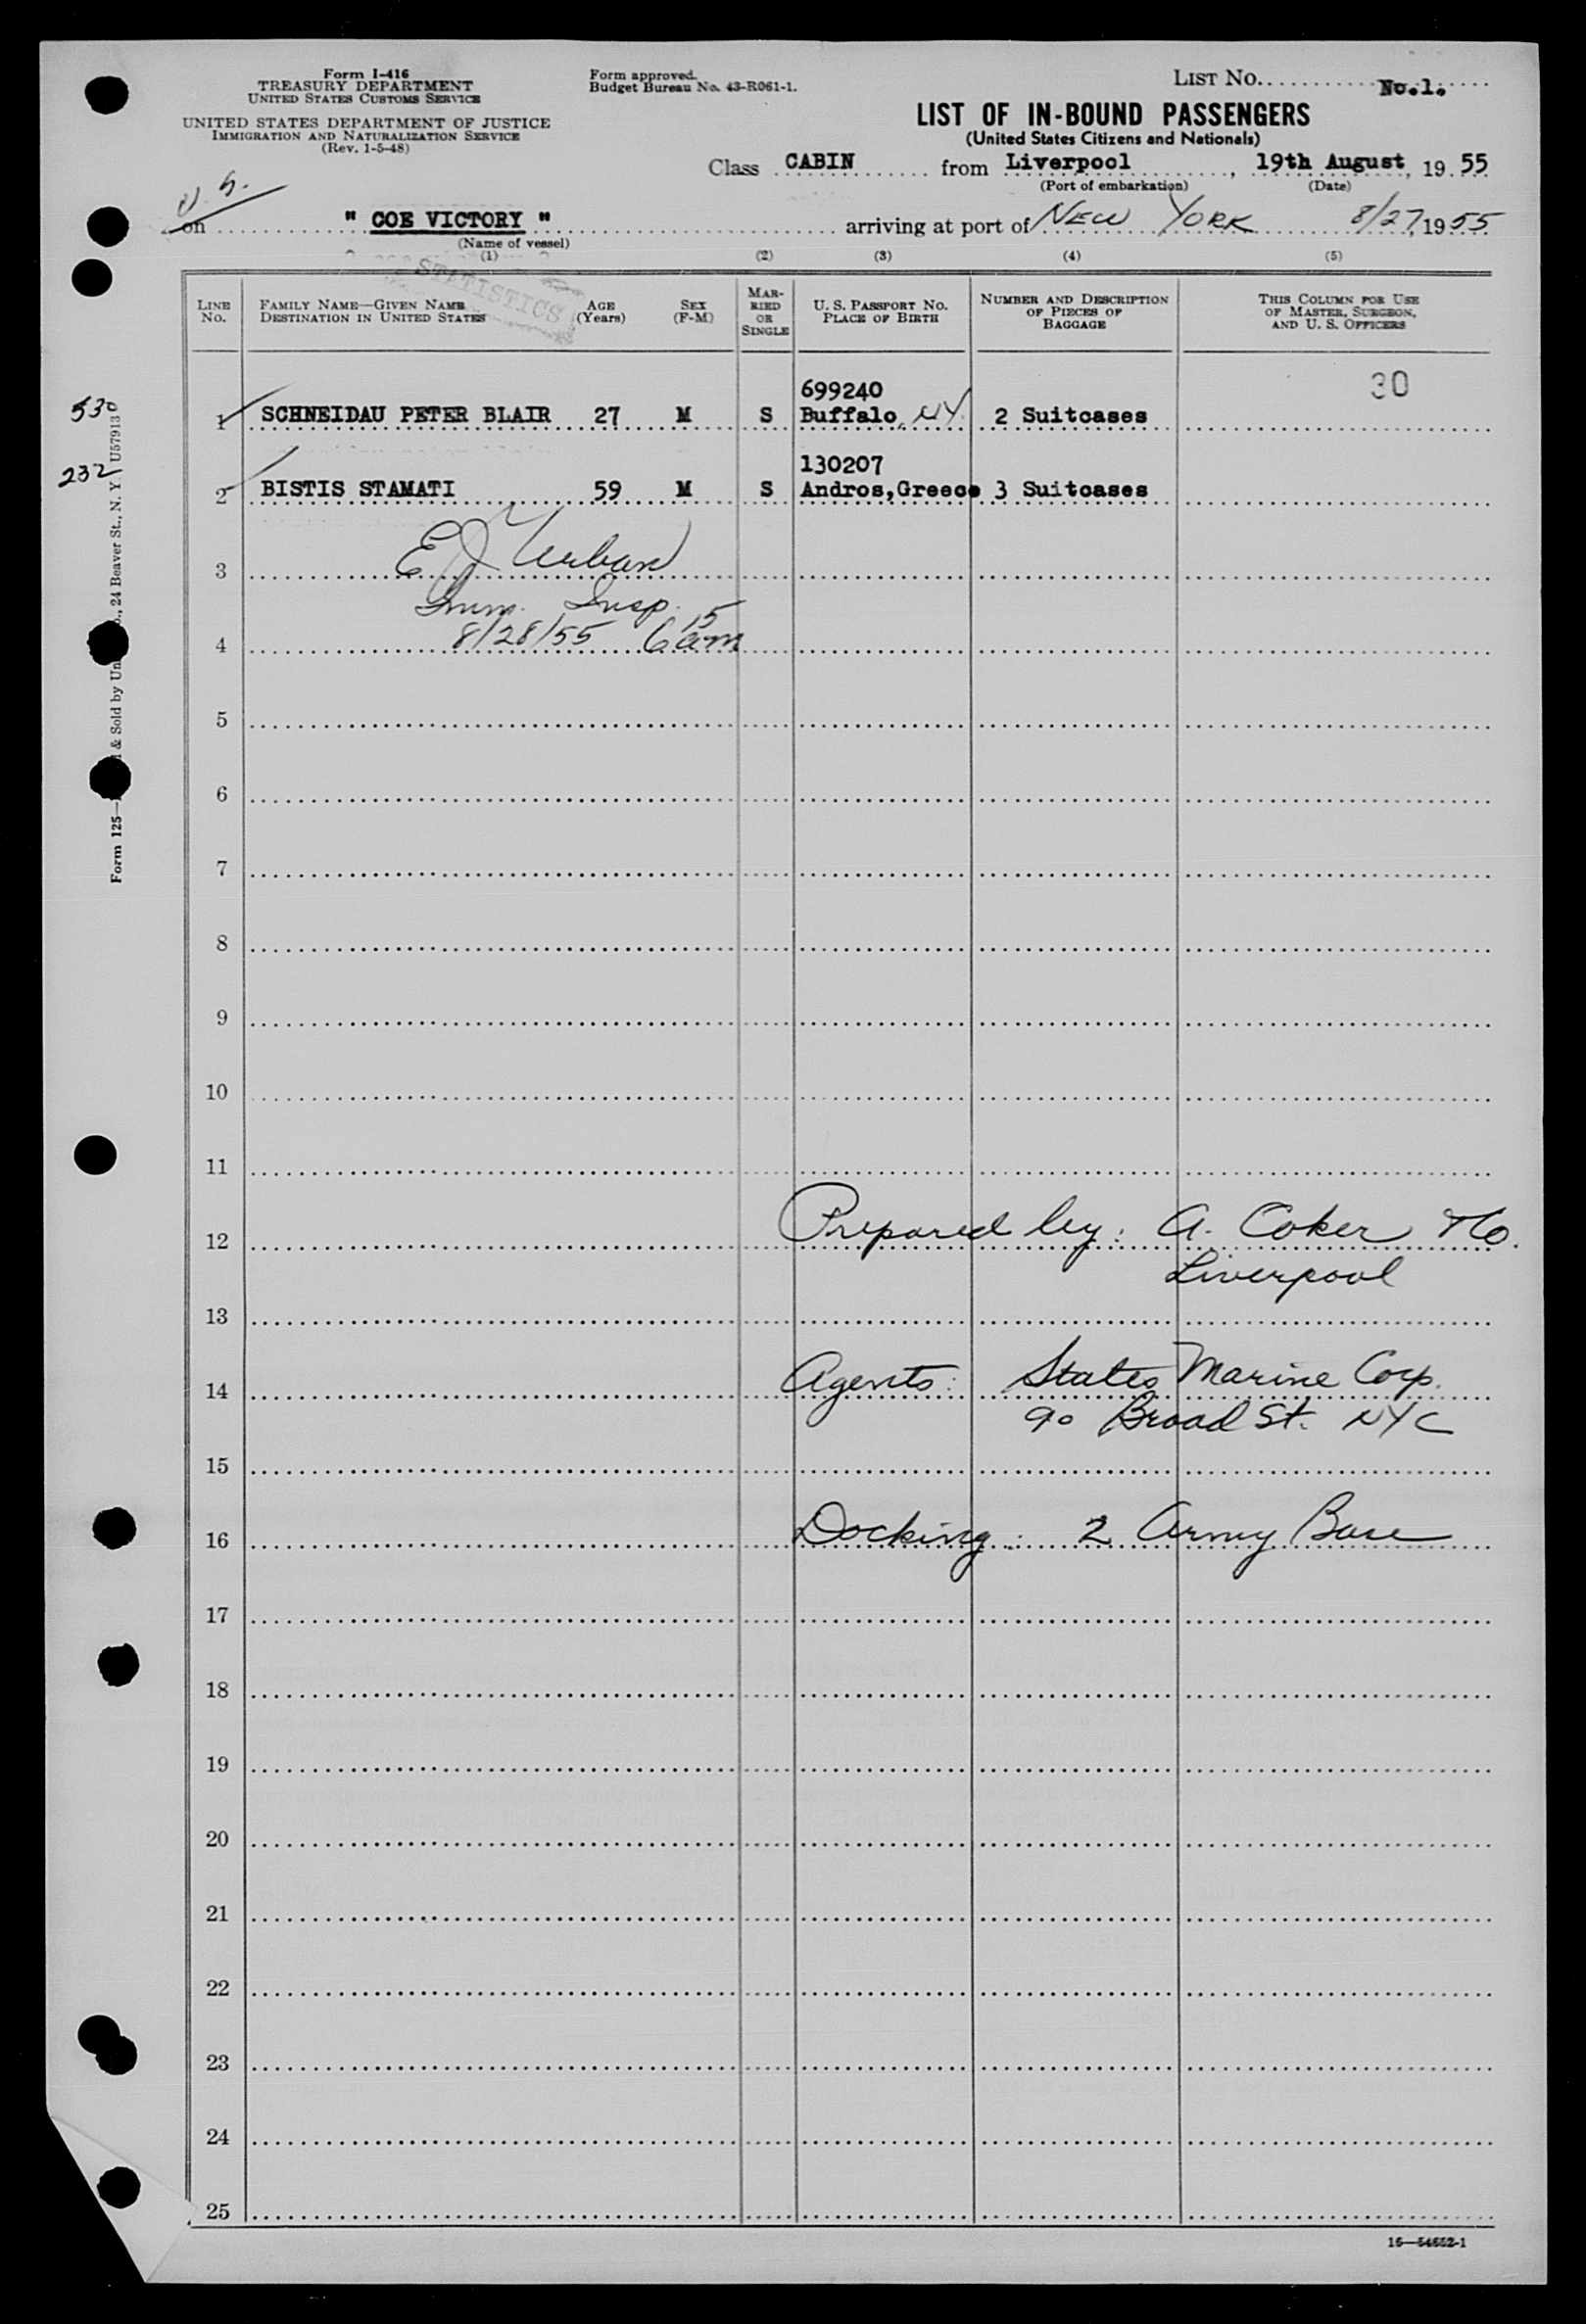 Form I-416
TREASURY DEPARTMENT
UNITED STATES CUSTOMS SERVICE
UNITED STATES DEPARTMENT OF JUSTICE
IMMIGRATION AND NATURALIZATION SERVICE
(Rev. 1-5-48)
Form approved.
Budget Bureau No. 43-R061-1.
LIST NO. No.1.
LIST OF IN-BOUND PASSENGERS
(United States Citizens and Nationals)
Class CABIN from Liverpool, 19th August, 19 55
(Port of embarkation) (Date)
on " COE VICTORY " arriving at port of NEW YORK 8/27, 19 55
(Name of vessel)
(1) (2) (3) (4) (5)
STATISTICS
LINE No. FAMILY NAME—GIVEN NAME DESTINATION IN UNITED STATES AGE (Years) SEX (F-M) MARRIED OR SINGLE U. S. PASSPORT NO. PLACE OF BIRTH NUMBER AND DESCRIPTION OF PIECES OF BAGGAGE THIS COLUMN FOR USE OF MASTER, SURGEON, AND U. S. OFFICERS
699240 30
530 1 SCHNEIDAU PETER BLAIR 27 M S Buffalo, NY. 2 Suitcases
130207
232 2 BISTIS STAMATI 59 M S Andros,Greece 3 Suitcases
3 E J Urban
Imm. Insp.
4 8/28/55 6 15 am
5
6
7
8
9
10
11
12 Prepared by: A. Coker & Co.
Liverpool
13
14 Agents: States Marine Corp.
90 Broad St. NYC
15
16 Docking: 2 Army Base
17
18
19
20
21
22
23
24
25
16—54652-1
Form 125— & Sold by 24 Beaver St., N. Y. U57913